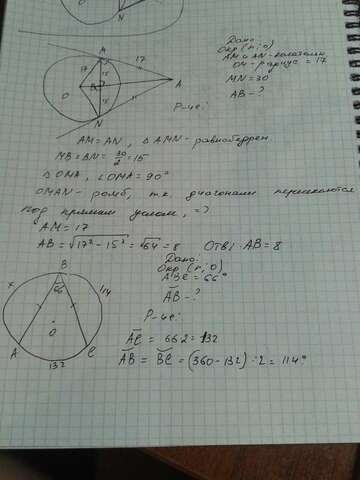 Дано:
Окр (r; O)
AM и AN - касательн
OM - радиус = 17
MN = 30
AB - ?
P-ие:
M
17
15
17
O
B
A
15
N
AM = AN, △ AMN - равнобедрен.
MB = BN = 30/2 = 15
△ OMA, ∠OMA = 90°
OMAN - ромб, т.к. диагонали пересекаются
под прямым углом, =>
AM = 17
AB = √17² - 15² = √64 = 8 Отв: AB = 8
Дано:
Окр (r; O)
ABC = 66°
AB - ?
P-ие:
B
x
66
114
O
A
C
132
AC = 66·2 = 132
AB = BC = (360 - 132) : 2 = 114°